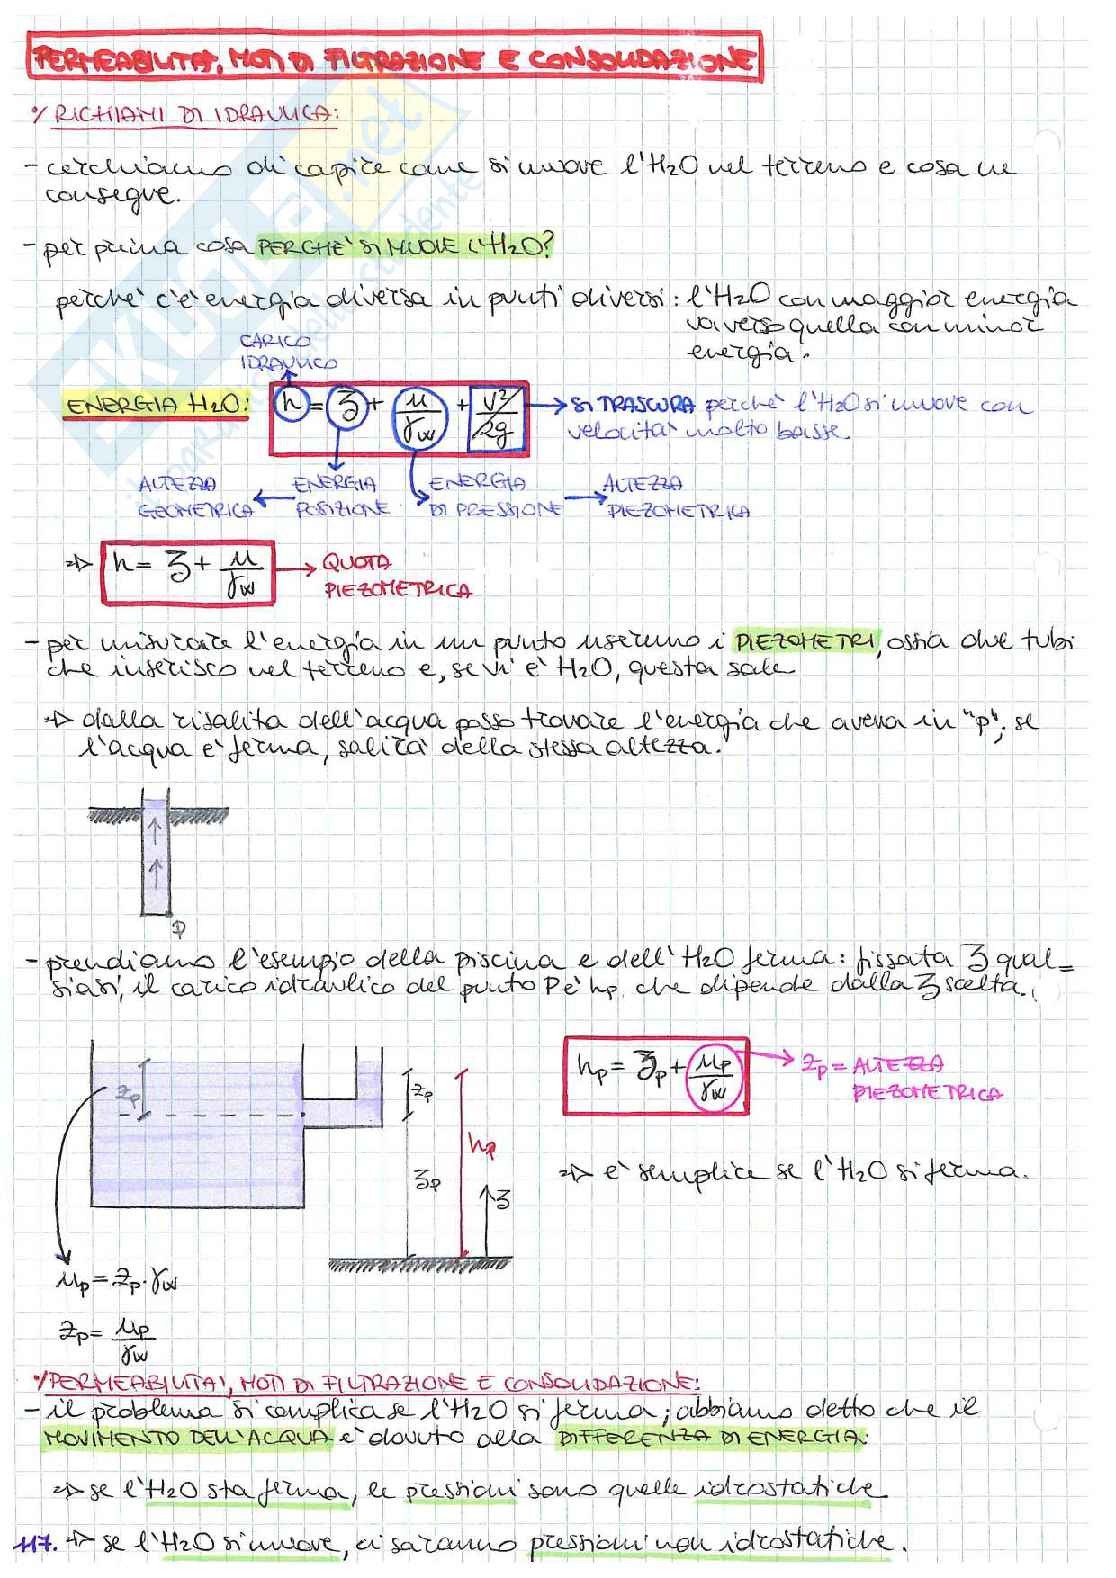 PERMEABILITA', MOTI DI FILTRAZIONE E CONSOLIDAZIONE
°/ RICHIAMI DI IDRAULICA:
- cerchiamo di capire come si muove l'H2O nel terreno e cosa ne
consegue.
- per prima cosa PERCHE' SI MUOVE L'H2O?
perche' c'e' energia diversa in punti diversi: l'H2O con maggior energia
va verso quella con minor
energia.
CARICO
IDRAULICO
ENERGIA H2O: h = ʒ + u/γw + v²/2g → SI TRASCURA perche' l'H2O si muove con
velocita' molto basse.
ALTEZZA GEOMETRICA ← ENERGIA POSIZIONE
ENERGIA DI PRESSIONE → ALTEZZA PIEZOMETRICA
⇒ h = ʒ + u/γw → QUOTA
PIEZOMETRICA
- per misurare l'energia in un punto useremo i PIEZOMETRI, ossia due tubi
che inserisco nel terreno e, se vi e' H2O, questa sale
⇒ dalla risalita dell'acqua posso trovare l'energia che aveva in "p"; se
l'acqua e' ferma, salira' della stessa altezza.
P
- prendiamo l'esempio della piscina e dell'H2O ferma: fissata ʒ qual=
siasi, il carico idraulico del punto P e' hp che dipende dalla ʒ scelta.
hp = ʒp + up/γw → zp = ALTEZZA
PIEZOMETRICA
zp
zp
hp
ʒp
ʒ
⇒ e' semplice se l'H2O si ferma.
up = zp · γw
zp = up/γw
°/ PERMEABILITA', MOTI DI FILTRAZIONE E CONSOLIDAZIONE:
- il problema si complica se l'H2O si ferma; abbiamo detto che il
MOVIMENTO DELL'ACQUA e' dovuto alla DIFFERENZA DI ENERGIA:
⇒ se l'H2O sta ferma, le pressioni sono quelle idrostatiche
117. ⇒ se l'H2O si muove, ci saranno pressioni non idrostatiche.